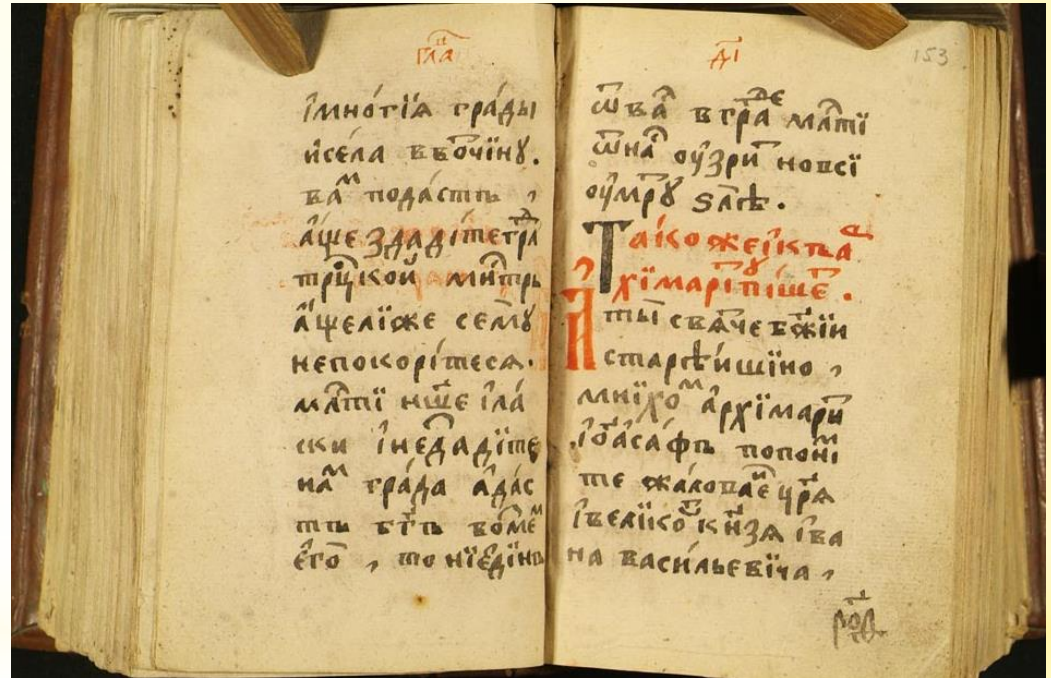 гла҃
імно́гїѧ гра́ды
и҆се́ла вво́чїнꙋ.
ва́м пода́стъ ,
а҆́ще здадї́те гра́д
тро́цкой мн҃трь
а҆́щелїже семꙋ̀
непокорі́тесѧ.
млⷭ҇ти нш҃еѧ іла́
ски і҆недадїте
на́м гра́да а҆да́с
тъ бг҃ъ во́мем
є҆го̀ , то нїедїнъ
д҃і
153
ѿ ва́с вгра́де млⷭ҇ти
ѿ на́с оу҆́зрит новсї
оу҆́мрꙋт ѕлѣ̀.
Та́ко же і҆ къ а
рхїмари́тꙋ пі́шет.
И҆ ты̀ свѧ́че бж҃їи
старѣ́ишїно ,
мнїхо́м а҆рхїмари́т
і҆оаса́фъ попо́мни
те жа́лованїе цр҃ѧ
і҆вели́кого кн҃зѧ і҆ва
на васи́льевїча ,